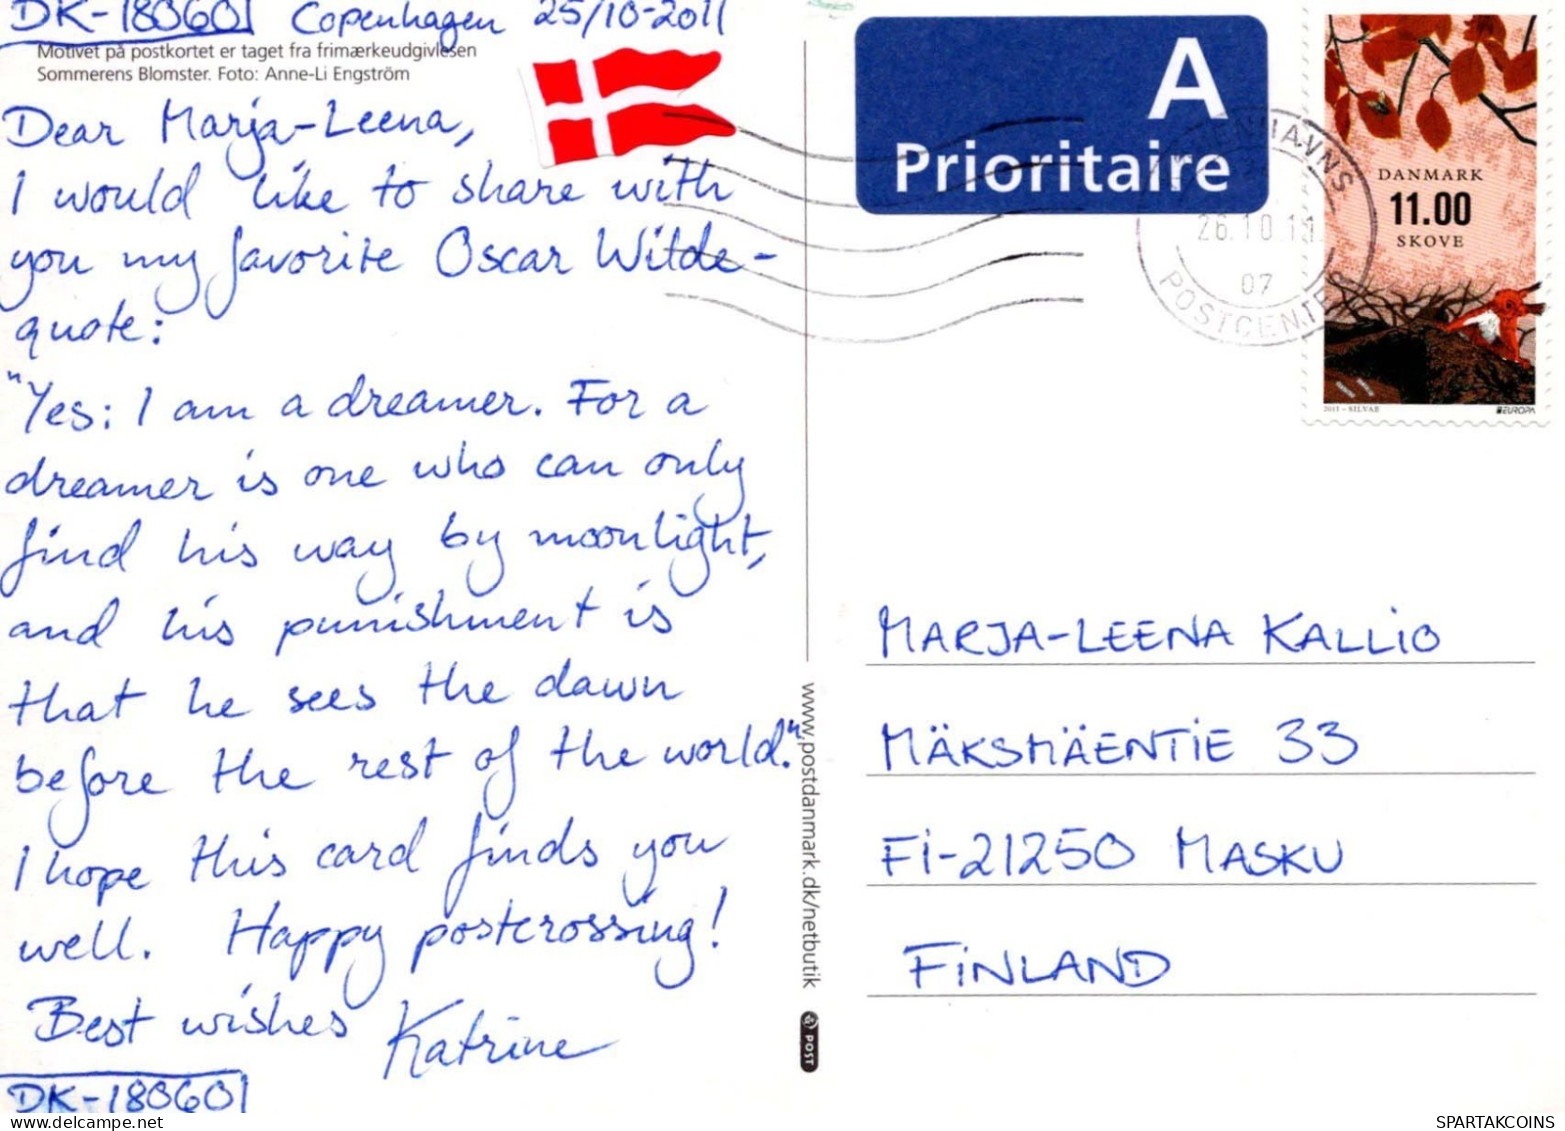 DK-180601 Copenhagen 25/10-2011
Motivet på postkortet er taget fra frimærkeudgivlesen
Sommerens Blomster. Foto: Anne-Li Engström
Dear Marja-Leena,
I would like to share with
you my favorite Oscar Wilde-
quote:
"Yes: I am a dreamer. For a
dreamer is one who can only
find his way by moonlight,
and his punishment is
that he sees the dawn
before the rest of the world."
I hope this card finds you
well. Happy postcrossing!
Best wishes Katrine
DK-180601
www.postdanmark.dk/netbutik
POST
A
Prioritaire
26.10.11
07
POSTCENTER
DANMARK
11.00
SKOVE
2011 - SILVAE
EUROPA
MARJA-LEENA KALLIO
MÄKSMÄENTIE 33
Fi-21250 MASKU
FINLAND
www.delcampe.net
SPARTAKCOINS